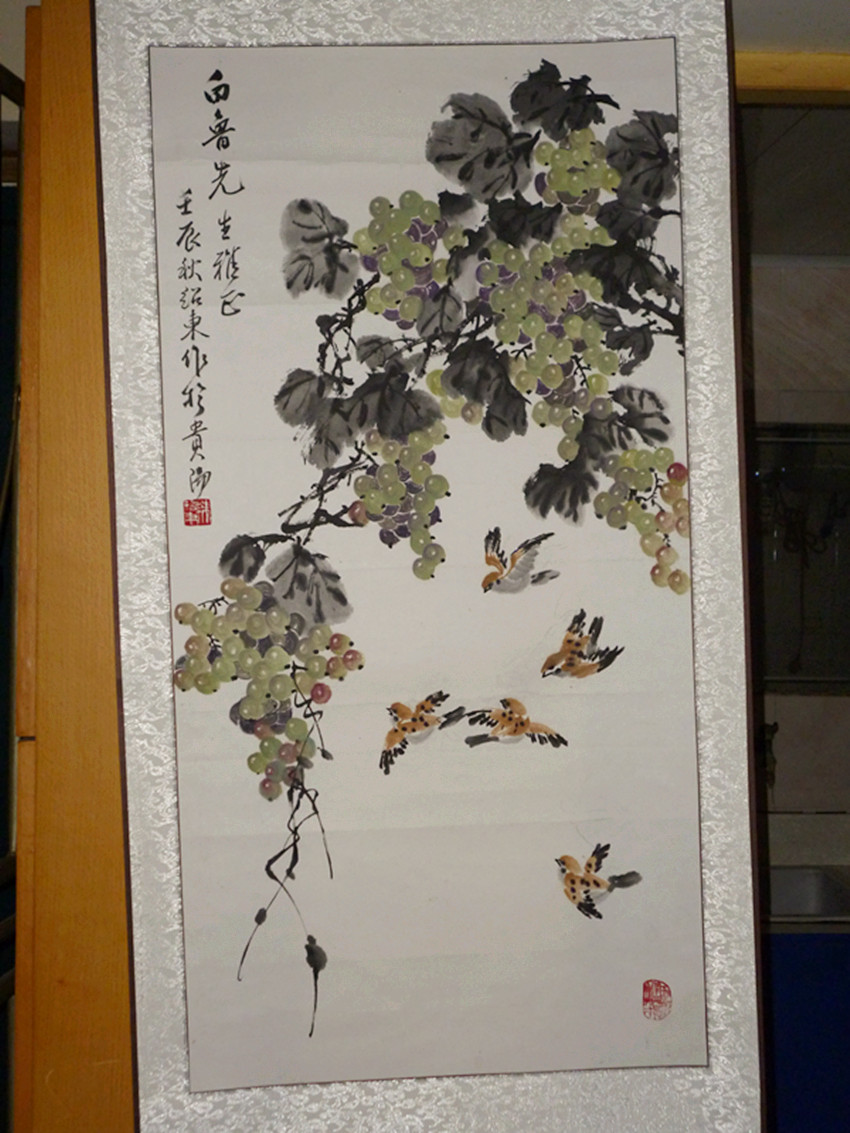 白魯先生雅正
壬辰秋紹東作於貴